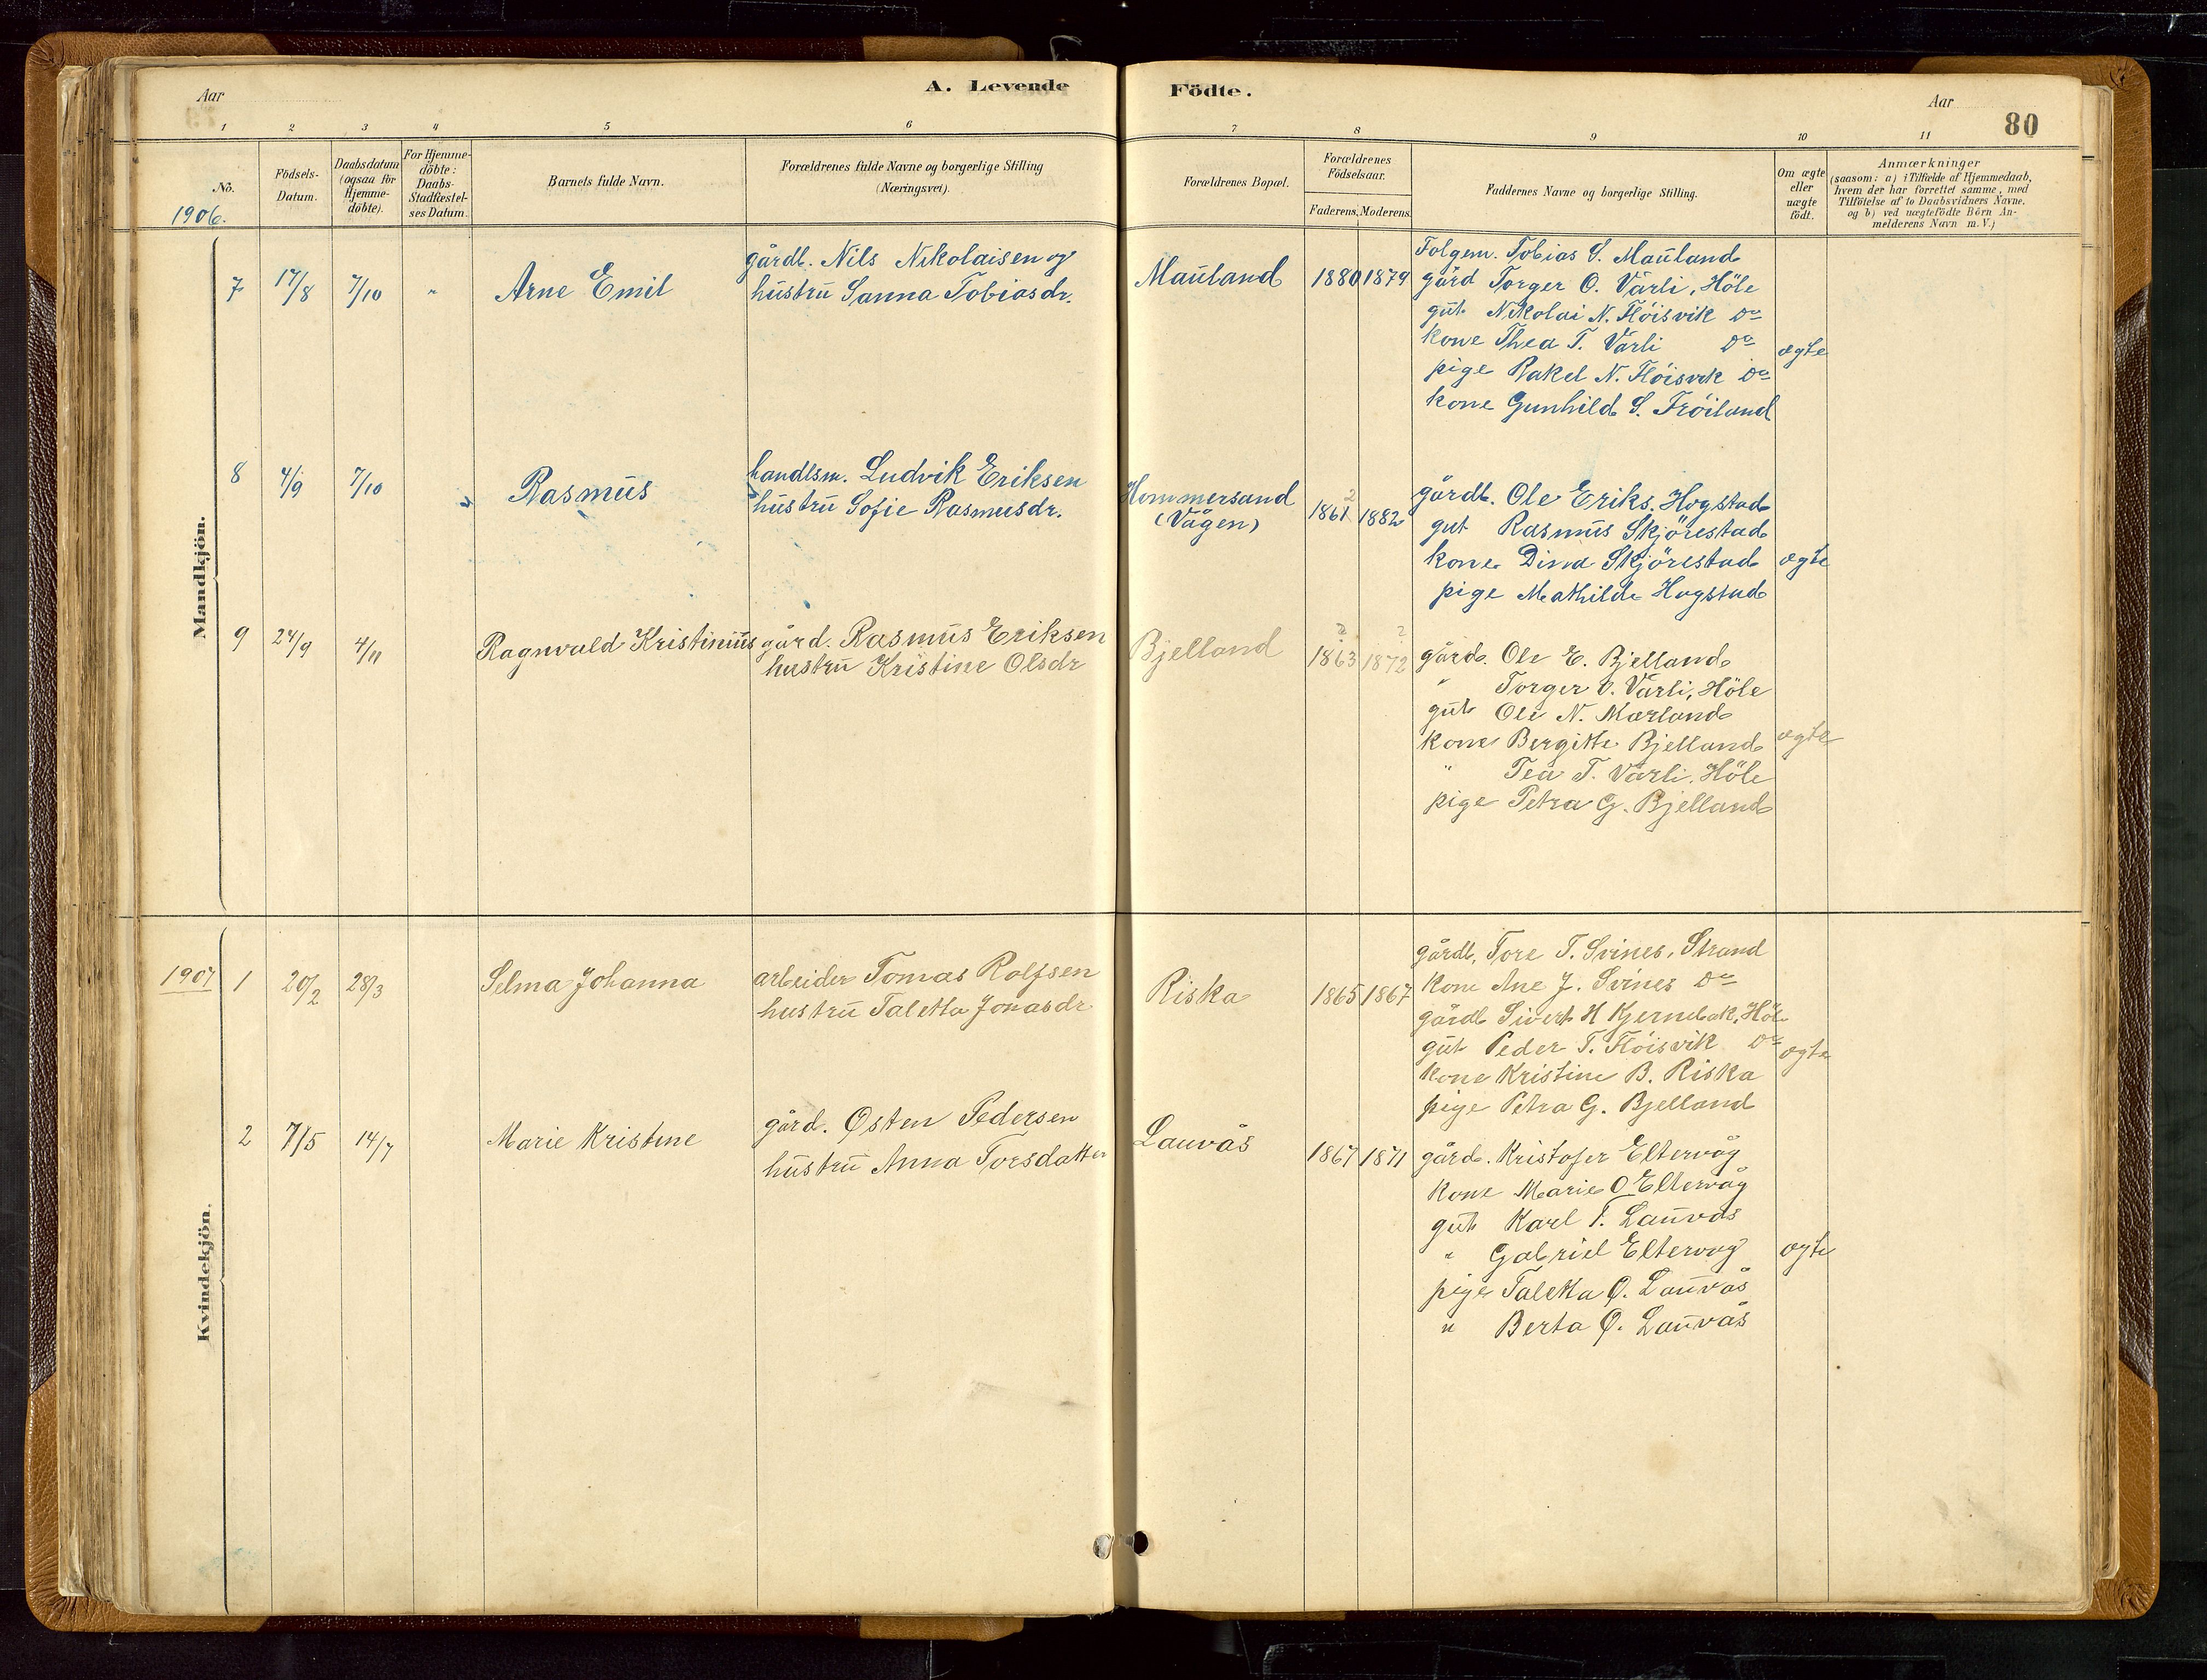 Aar
A. Levende
Födte.
Aar
80
1
2
3
4
5
6
7
8
9
10
11
No.
1906.
Födsels-
Datum.
Daabsdatum
(ogsaa for
Hjemme-
döbte).
For Hjemme-
döbte:
Daabs-
Stadfæstel-
ses Datum.
Barnets fulde Navn.
Forældrenes fulde Navne og borgerlige Stilling
(Næringsvei).
Forældrenes Bopæl.
Forældrenes
Födselsaar.
Faderens.
Moderens.
Faddernes Navne og borgerlige Stilling.
Om ægte
eller
uægte
födt.
Anmærkninger
(saasom: a) i Tilfælde af Hjemmedaab,
hvem der har forrettet samme, med
Tilföielse af to Daabsvidners Navne.
og b) ved uægtefödte Börn An-
melderens Navn m. V.)
Mandkjön.
7 17/8 7/10 " Arne Emil
gårdb. Nils Nikolaisen og
hustru Sanna Tobiasdr.
Mauland 1880 1879
Folgem. Tobias S. Mauland
gård Torger O. Värli, Höle
gut Nikolai N. Flöisvik Do
kone Thea T. Värli Do
pige Rakel N. Flöisvik Do
kone Gunhild S. Fröiland
ægte
8 4/9 7/10 " Rasmus
handlsm. Ludvik Eriksen
hustru Sofie Rasmusdr.
Hommersand
(Vågen)
2
1861 1882
gårdb. Ole Eriks. Hogstad
gut Rasmus Skjörestad
kone Dina Skjörestad
pige Mathilde Hogstad
ægte
9 24/9 4/11 Ragnvald Kristinius
gård. Rasmus Eriksen
hustru Kristine Olsdr
Bjelland
? ?
1863 1872
gårdb. Ole E. Bjelland
" Torger O. Värli, Höle
gut Ole N. Mærland
kone Bergitte Bjelland
" Tea T. Värli, Höle
pige Petra G. Bjelland
ægte
Kvindekjön.
1907 1 20/2 28/3 Selma Johanna
arbeider Tomas Rolfsen
hustru Taletta Jonasdr
Riska 1865 1867
gårdb. Tore T. Svines, Strand
kone Ane J. Svines Do
gårdb Sivert H Kjernebak, Höle
gut Peder T. Flöisvik Do
kone Kristine B. Riska
pige Petra G. Bjelland
ægte
2 7/5 14/7 Marie Kristine
gård. Østen Pedersen
hustru Anna Torsdatter
Lauvås 1867 1871
gård. Kristofer Eltervåg
kone Marie O Eltervåg
gut Karl T. Lauvås
" Gabriel Eltervåg
pige Taletta Ø. Lauvås
" Berta Ø. Lauvås
ægte